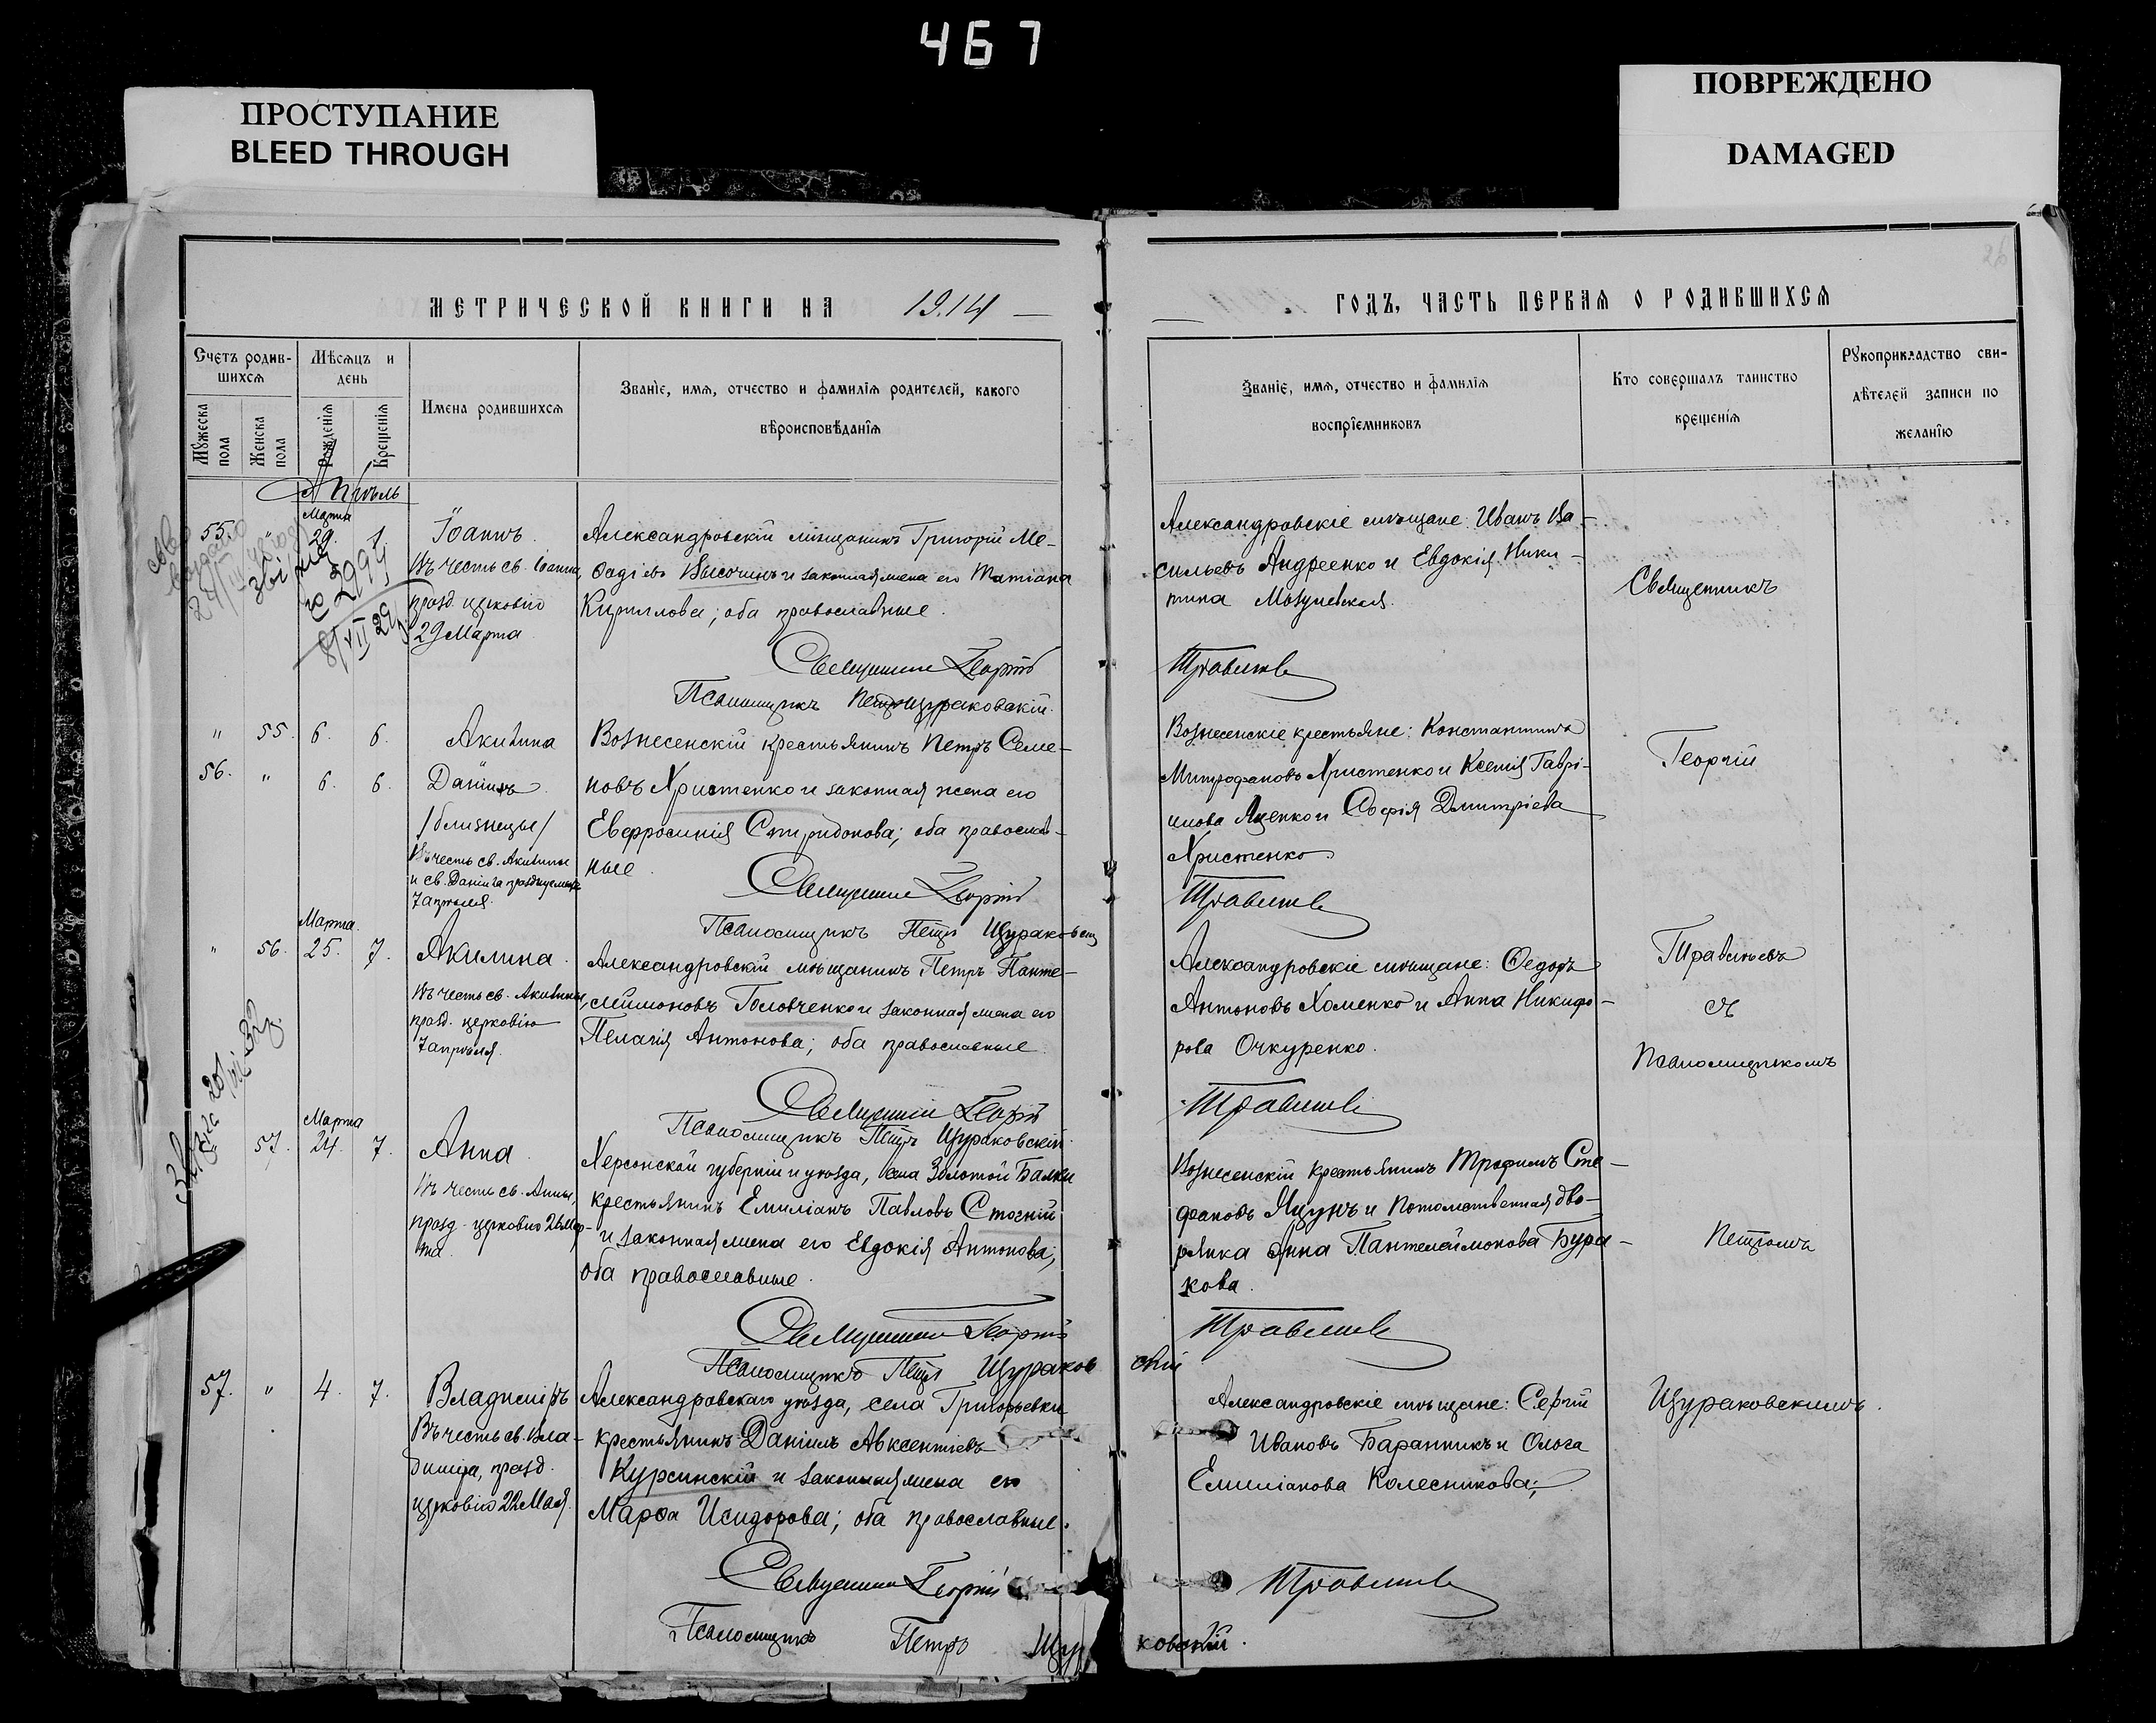 467
ПРОСТУПАНИЕ
BLEED THROUGH
ПОВРЕЖДЕНО
DAMAGED
26
МЕТРИЧЕСКОЙ КНИГИ НА 1914
ГОДЪ, ЧАСТЬ ПЕРВАЯ О РОДИВШИХСЯ
Счетъ родив-
шихся
Мужеска пола
Женска пола
Мѣсяцъ и
день
Рожденія
Крещенія
Имена родившихся
Званіе, имя, отчество и фамилія родителей, какого
вѣроисповѣданія
Званіе, имя, отчество и фамилія
воспріемниковъ
Кто совершалъ таинство
крещенія
Рукоприкладство сви-
дѣтелей записи по
желанію
Апрѣль
Марта
55. " 29. 1.
Іоаннъ.
Въ честь св. Іоанна,
празд. церковію
29 Марта
Александровскій мѣщанинъ Григорій Ме-
ѳодіевъ Высочинъ и законная жена его Татіана
Кириллова; оба православные.
Священникъ Георгій
Травлевъ
Псаломщикъ Петръ Щураковскій.
Александровскіе мѣщане: Иванъ Ва-
сильевъ Андреенко и Евдокія Ники-
тина
Священникъ
" 55. 6. 6.
Акилина
56. " 6. 6.
Даніилъ
/близнецы/
Въ честь св. Акилины
и св. Даніила празднуемыхъ
7 апрѣля.
Вознесенскій крестьянинъ Петръ Семе-
новъ Христенко и законная жена его
Евфросинія Спиридонова; оба православ-
ные.
Священникъ Георгій
Псаломщикъ Петръ Щураковскій
Вознесенскіе крестьяне: Константинъ
Митрофановъ Христенко и Ксенія Гаврі-
илова Яценко и Софія Дмитріева
Христенко.
Георгій
Марта.
" 56. 25. 7.
Акилина.
Въ честь св. Акилины,
празд. церковію
7 апрѣля.
Александровскій мѣщанинъ Петръ Панте-
леимоновъ Головченко и законная жена его
Пелагія Антонова; оба православные.
Священникъ Георгій
Псаломщикъ Петръ Щураковскій.
Александровскіе мѣщане: Ѳедоръ
Антоновъ Хоменко и Анна Никифо-
рова Очкуренко.
съ
Псаломщикомъ
Марта
" 57. 24. 7.
Анна.
Въ честь св. Анны,
празд. церковію 26 Мар-
та.
Херсонской губерніи и уѣзда, села Золотой Балки
крестьянинъ Емиліанъ Павловъ Стогній
и законная жена его Евдокія Антонова;
оба православные.
Священникъ Георгій
Псаломщикъ Петръ Щураковскій
Вознесенскій крестьянинъ Трофимъ Сте-
фановъ Яцунъ и потомственная дво-
рянка Анна Пантелеймонова Бура-
кова.
Петромъ
57. " 4. 7.
Владиміръ
Въ честь св. Вла-
диміра, празд.
церковію 22 Мая.
Александровскаго уѣзда, села Григорьевки
крестьянинъ Даніилъ Авксентіевъ
Курсинскій и законная жена его
Марѳа Исидорова; оба православные.
Священникъ Георгій
Псаломщикъ Петръ Щур ковскій.
Александровскіе мѣщане: Сергій
Ивановъ Баранникъ и Ольга
Емиліанова Колесникова;
Щураковскимъ.